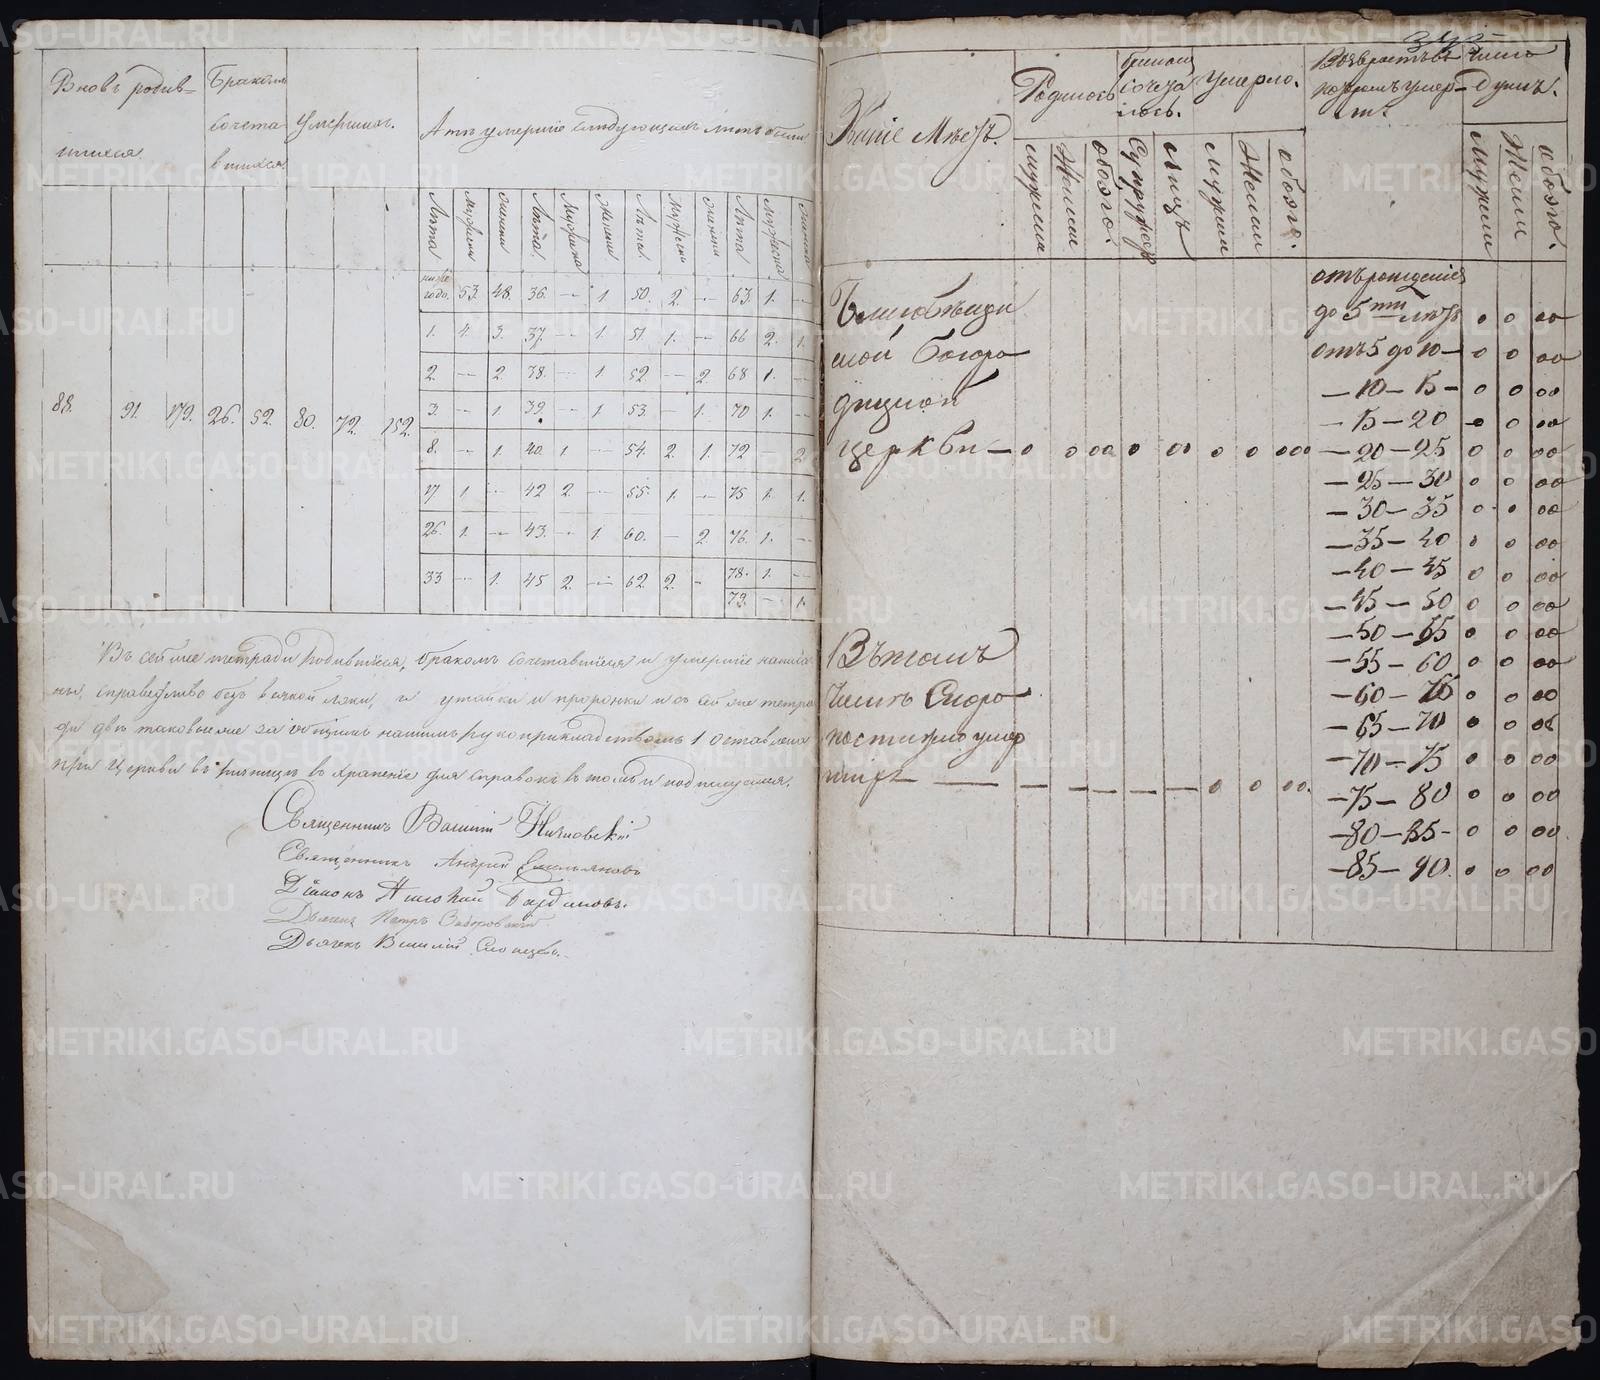 Вновь родив-
шихся
Браком
сочета
вшихся
Умерших.
А те умершие следующих лет были
Лѣта Мужеска Женска Лѣта Мужеска Женска Лѣта Мужеска Женска Лѣта Мужеска Женска
ниже года. 53. 48. 36. — 1 50. 2. — 63. 1. —
1. 4. 3. 37. — 1. 51. 1. — 66 2. 1.
2. — 2. 38. — 1 52. — 2. 68 1. —
3. — 1. 39. — 1 53. — 1. 70 1. —
88. 91. 179. 26. 52. 80. 72. 152.
8. — 1. 40. 1 — 54. 2. 1. 72 — 2
17 1 — 42 2. — 55. 1. — 75 1. 1.
26. 1. — 43. — 1. 60. — 2. 76. 1. —
33 — 1. 45 2. — 62. 2. — 78. 1. —
79. — 1.
Въ сей же тетради родившіеся, бракомъ сочетавшіеся и умершіе написа
ны, справедливо безъ всякой лжи, и утайки и прописки и съ сей же тетра
ди двѣ таковыеже за общимъ нашимъ рукоприкладствомъ 1 оставлена
при церкви въ ризницѣ въ храненіе для справокъ в томъ и подписуемся.
Священникъ Василій
Священникъ Андрей Емельяновъ
Діаконъ
Дьячекъ Петръ
Дьячекъ Василій
Званіе Мѣстъ.
Родилось
Бракомъ
сочета
лось.
Умерло.
Возврастъ въ
котромъ умер-
ли.
Число
Душъ.
мужеска Женска обоего. Супружествъ Лицъ мужеска Женска обоего. мужеска Женска обоего.
отъ рожденія
до 5ти лѣтъ 0 0 00
отъ 5 до 10 — 0 0 00
— 10 — 15 — 0 0 00
— 15 — 20 0 0 00
— 20 — 25 0 0 00
— 25 — 30 0 0 00
— 30 — 35 0 0 00
— 35 — 40 0 0 00
— 40 — 45 0 0 00
— 45 — 50 0 0 00
— 50 — 55 0 0 00
— 55 — 60 0 0 00
— 60 — 0 0 00
— 65 — 70 0 0 00
— 70 — 75 0 0 00
— 75 — 80 0 0 00
— 80 — 85 — 0 0 00
— 85 — 90. 0 0 00
ской Богоро
дицкой
церкви — 0 0 00 0 00 0 0 000
Въ томъ
числѣ Скоро
постижно умер
шихъ — — — — — — 0 0 00.
METRIKI.GASO-URAL.RU